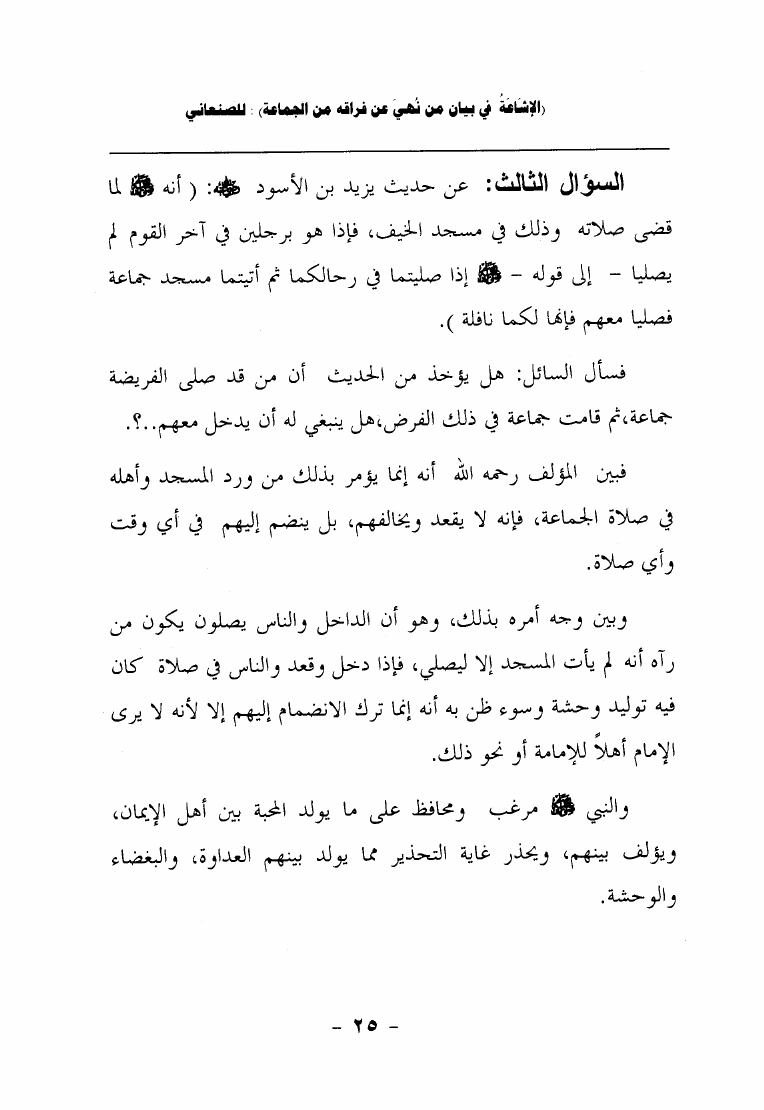 (الإشَاعَةُ في بيان من نُهيَ عن فراقه من الجماعة) : للصنعاني
السؤال الثالث: عن حديث يزيد بن الأسود ﵁: ( أنه ﷺ لما
قضى صلاته وذلك في مسجد الخيف، فإذا هو برجلين في آخر القوم لم
يصليا – إلى قوله – ﷺ إذا صليتما في رحالكما ثم أتيتما مسجد جماعة
فصليا معهم فإنها لكما نافلة ).
فسأل السائل: هل يؤخذ من الحديث أن من قد صلى الفريضة
جماعة،ثم قامت جماعة في ذلك الفرض،هل ينبغي له أن يدخل معهم..؟.
فبين المؤلف رحمه الله أنه إنما يؤمر بذلك من ورد المسجد وأهله
في صلاة الجماعة، فإنه لا يقعد ويخالفهم، بل ينضم إليهم في أي وقت
وأي صلاة.
وبين وجه أمره بذلك، وهو أن الداخل والناس يصلون يكون من
رآه أنه لم يأت المسجد إلا ليصلي، فإذا دخل وقعد والناس في صلاة كان
فيه توليد وحشة وسوء ظن به أنه إنما ترك الانضمام إليهم إلا لأنه لا يرى
الإمام أهلاً للإمامة أو نحو ذلك.
والنبي ﷺ مرغب ومحافظ على ما يولد المحبة بين أهل الإيمان،
ويؤلف بينهم، ويحذر غاية التحذير مما يولد بينهم العداوة، والبغضاء
والوحشة.
– ٢٥ –